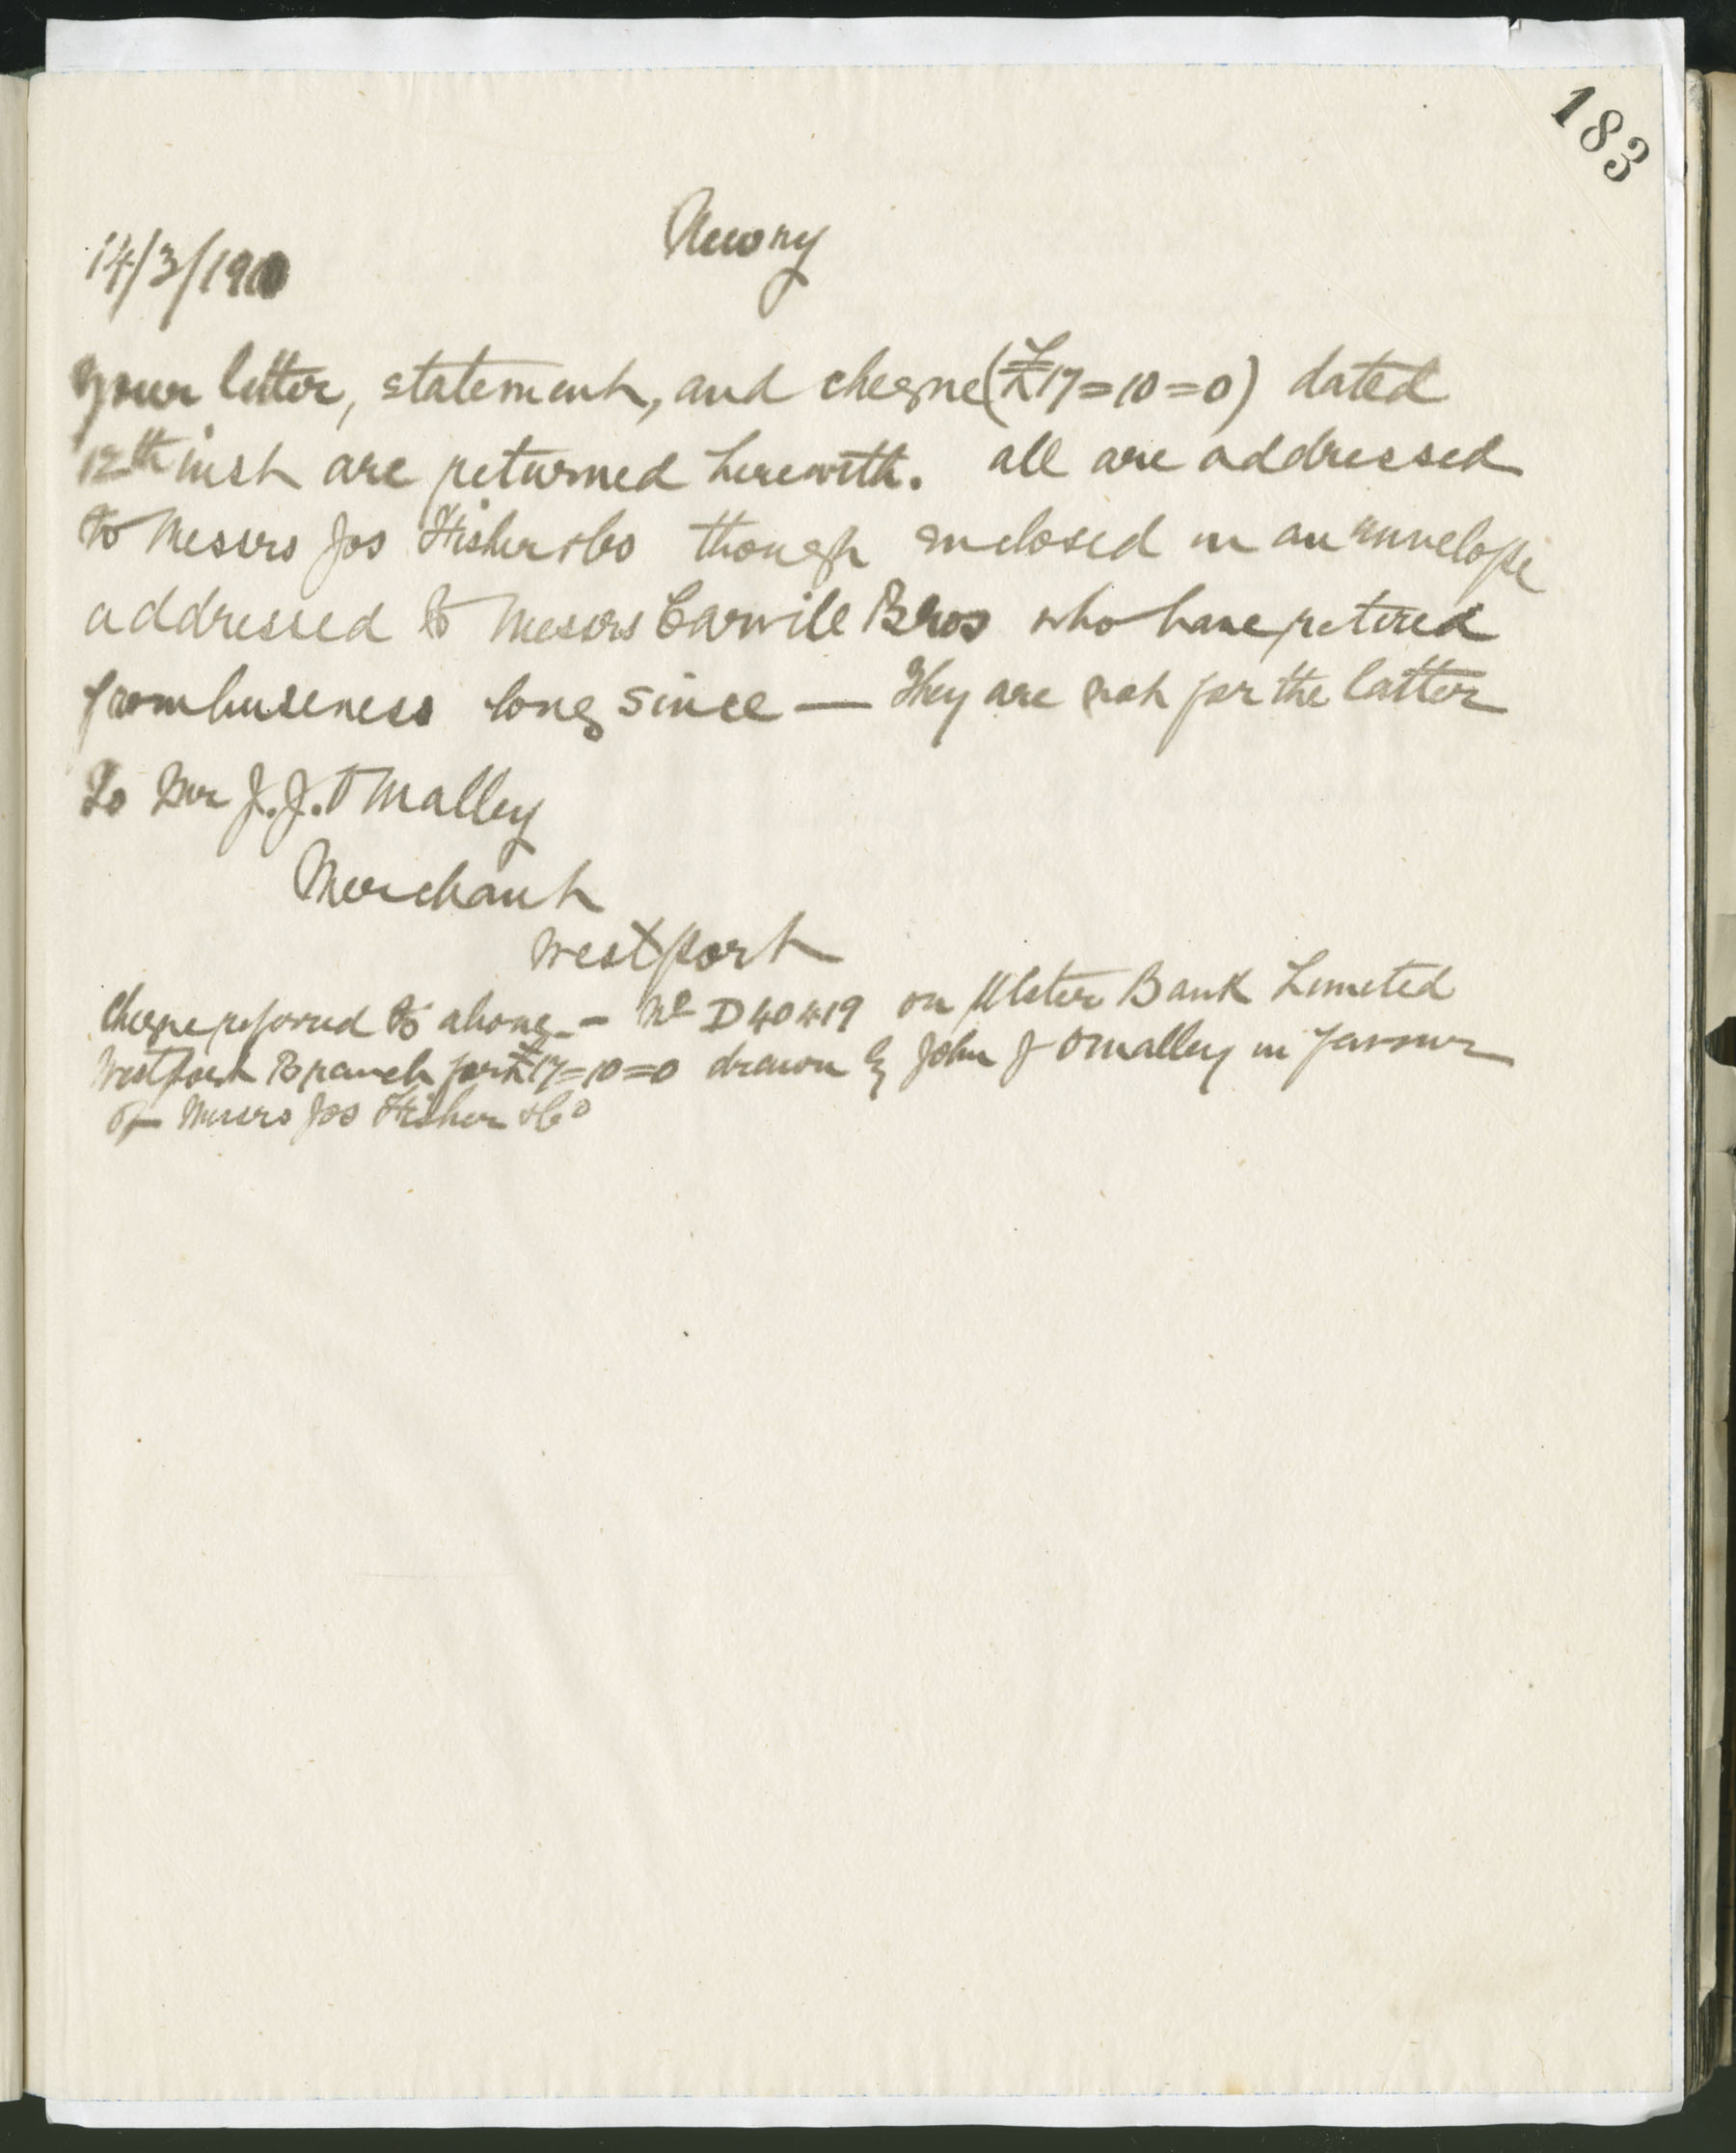 183
Newry
14/3/1910
Your letter, statement, and cheque (£17=10=0) dated
12th inst are returned herewith. All are addressed
to Messrs Jos Fisher & Co though enclosed in an envelope
addressed to Messrs Carvill Bros who have retired
from business long since — They are not for the latter
To Mr J.J. O'Malley
Merchant
Westport
Cheque referred to above - No D40419 on Ulster Bank Limited
Westport Branch for £17=10=0 drawn by John J O'Malley in favour
of Messrs Jos Fisher & Co